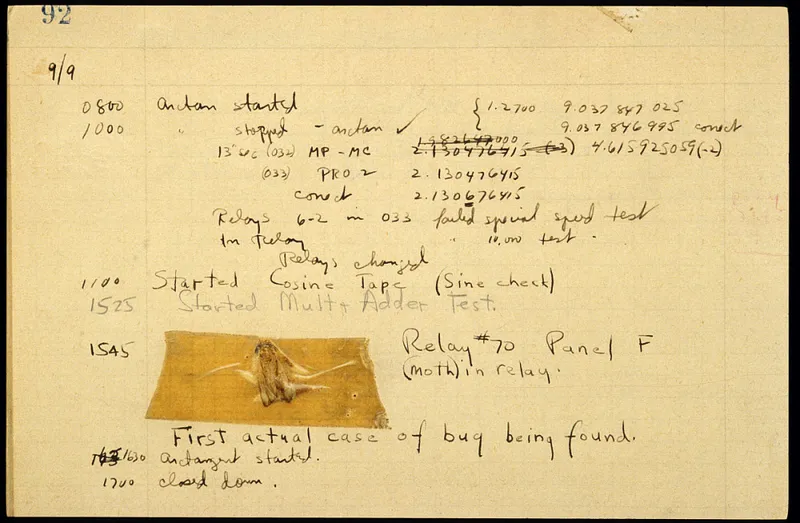 92
9/9
0800 arctan started { 1.2700 9.037 847 025
1000 " stopped - arctan ✓ 9.037 846 995 correct
13"sec (032) MP - MC 2.130476415 (-3) 4.615925059(-2)
(033) PRO 2 2.130476415
correct 2.130676415
Relays 6-2 in 033 failed special speed test
In Relay " 10,000 test .
Relays changed
1100 Started Cosine Tape (Sine check)
1525 Started Mult + Adder Test.
1545 Relay #70 Panel F
(moth) in relay.
First actual case of bug being found.
1630 arctangent started.
1700 closed down .